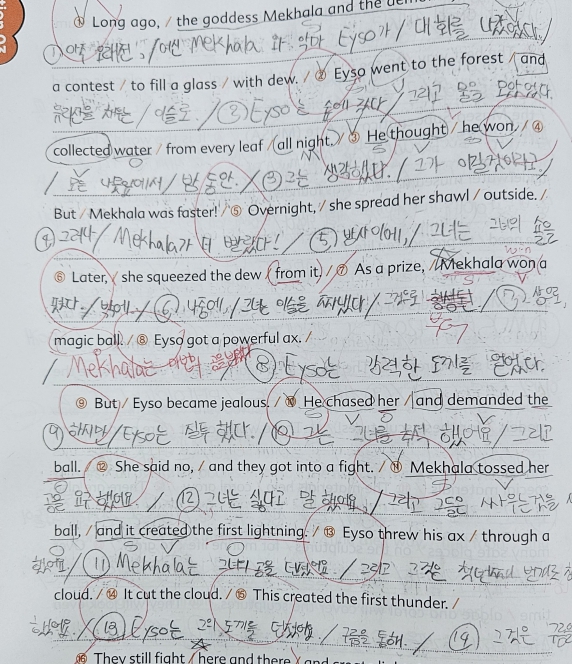 ① Long ago, / the goddess Mekhala and the
① 아주 오래전, / 여신 Mekhala 와 악마 Eyso가 / 대회를
a contest / to fill a glass / with dew. / ② Eyso went to the forest / and
유리잔을 채우는 / 이슬로. / ② Eyso는 숲에 갔다 / 그리고 물을 모았었다.
collected water / from every leaf / all night. / ③ He thought / he won. / ④
/ 모든 나뭇잎에서 / 밤 동안. / ③ 그는 생각했다. / 그가 이길것이라고. /
But / Mekhala was faster! / ⑤ Overnight, / she spread her shawl / outside. /
④ 그러나 / Mekhala가 더 빨랐다! / ⑤ 밤사이에, / 그녀는 그녀의 숄을
⑥ Later, / she squeezed the dew / from it. / ⑦ As a prize, / Mekhala won a
밖에. / ⑥ 나중에, / 그녀는 이슬을 짜냈다 / 그것으로 / ⑦ 상으로,
magic ball. / ⑧ Eyso got a powerful ax. /
/ Mekhala는 / ⑧ Eyso는 강력한 도끼를 얻었다.
⑨ But / Eyso became jealous. / ⑩ He chased her / and demanded the
⑨ 하지만 / Eyso는 질투 했다. / ⑩ 그는 그녀를 추적 했어요 / 그리고
ball. / ⑫ She said no, / and they got into a fight. / ⑪ Mekhala tossed her
공을 요구 했어요. / ⑫ 그녀는 싫다고 말 했어요, / 그리고 그들은 싸우는것을
ball, / and it created the first lightning. / ⑬ Eyso threw his ax / through a
했어요 / ⑪ Mekhala는 그녀의 공을 던졌어요. / 그리고 그것은 첫번째 번개를
cloud. / ⑭ It cut the cloud. / ⑮ This created the first thunder. /
했어요. / ⑬ Eyso는 그의 도끼를 던졌어요 / 구름을 통해. / ⑭ 그것은
⑯ They still fight / here and there / and